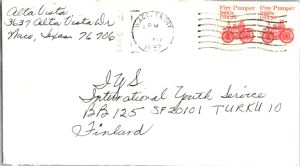 Alta Vista
3637 Alta Vista Dr
Waco, Texas 76706
PM
Fire Pumper
1860s
USA 20c
Fire Pumper
1860s
USA 20c
I Y S
International Youth Service
BB 125 SF 20101 TURKU 10
Finland